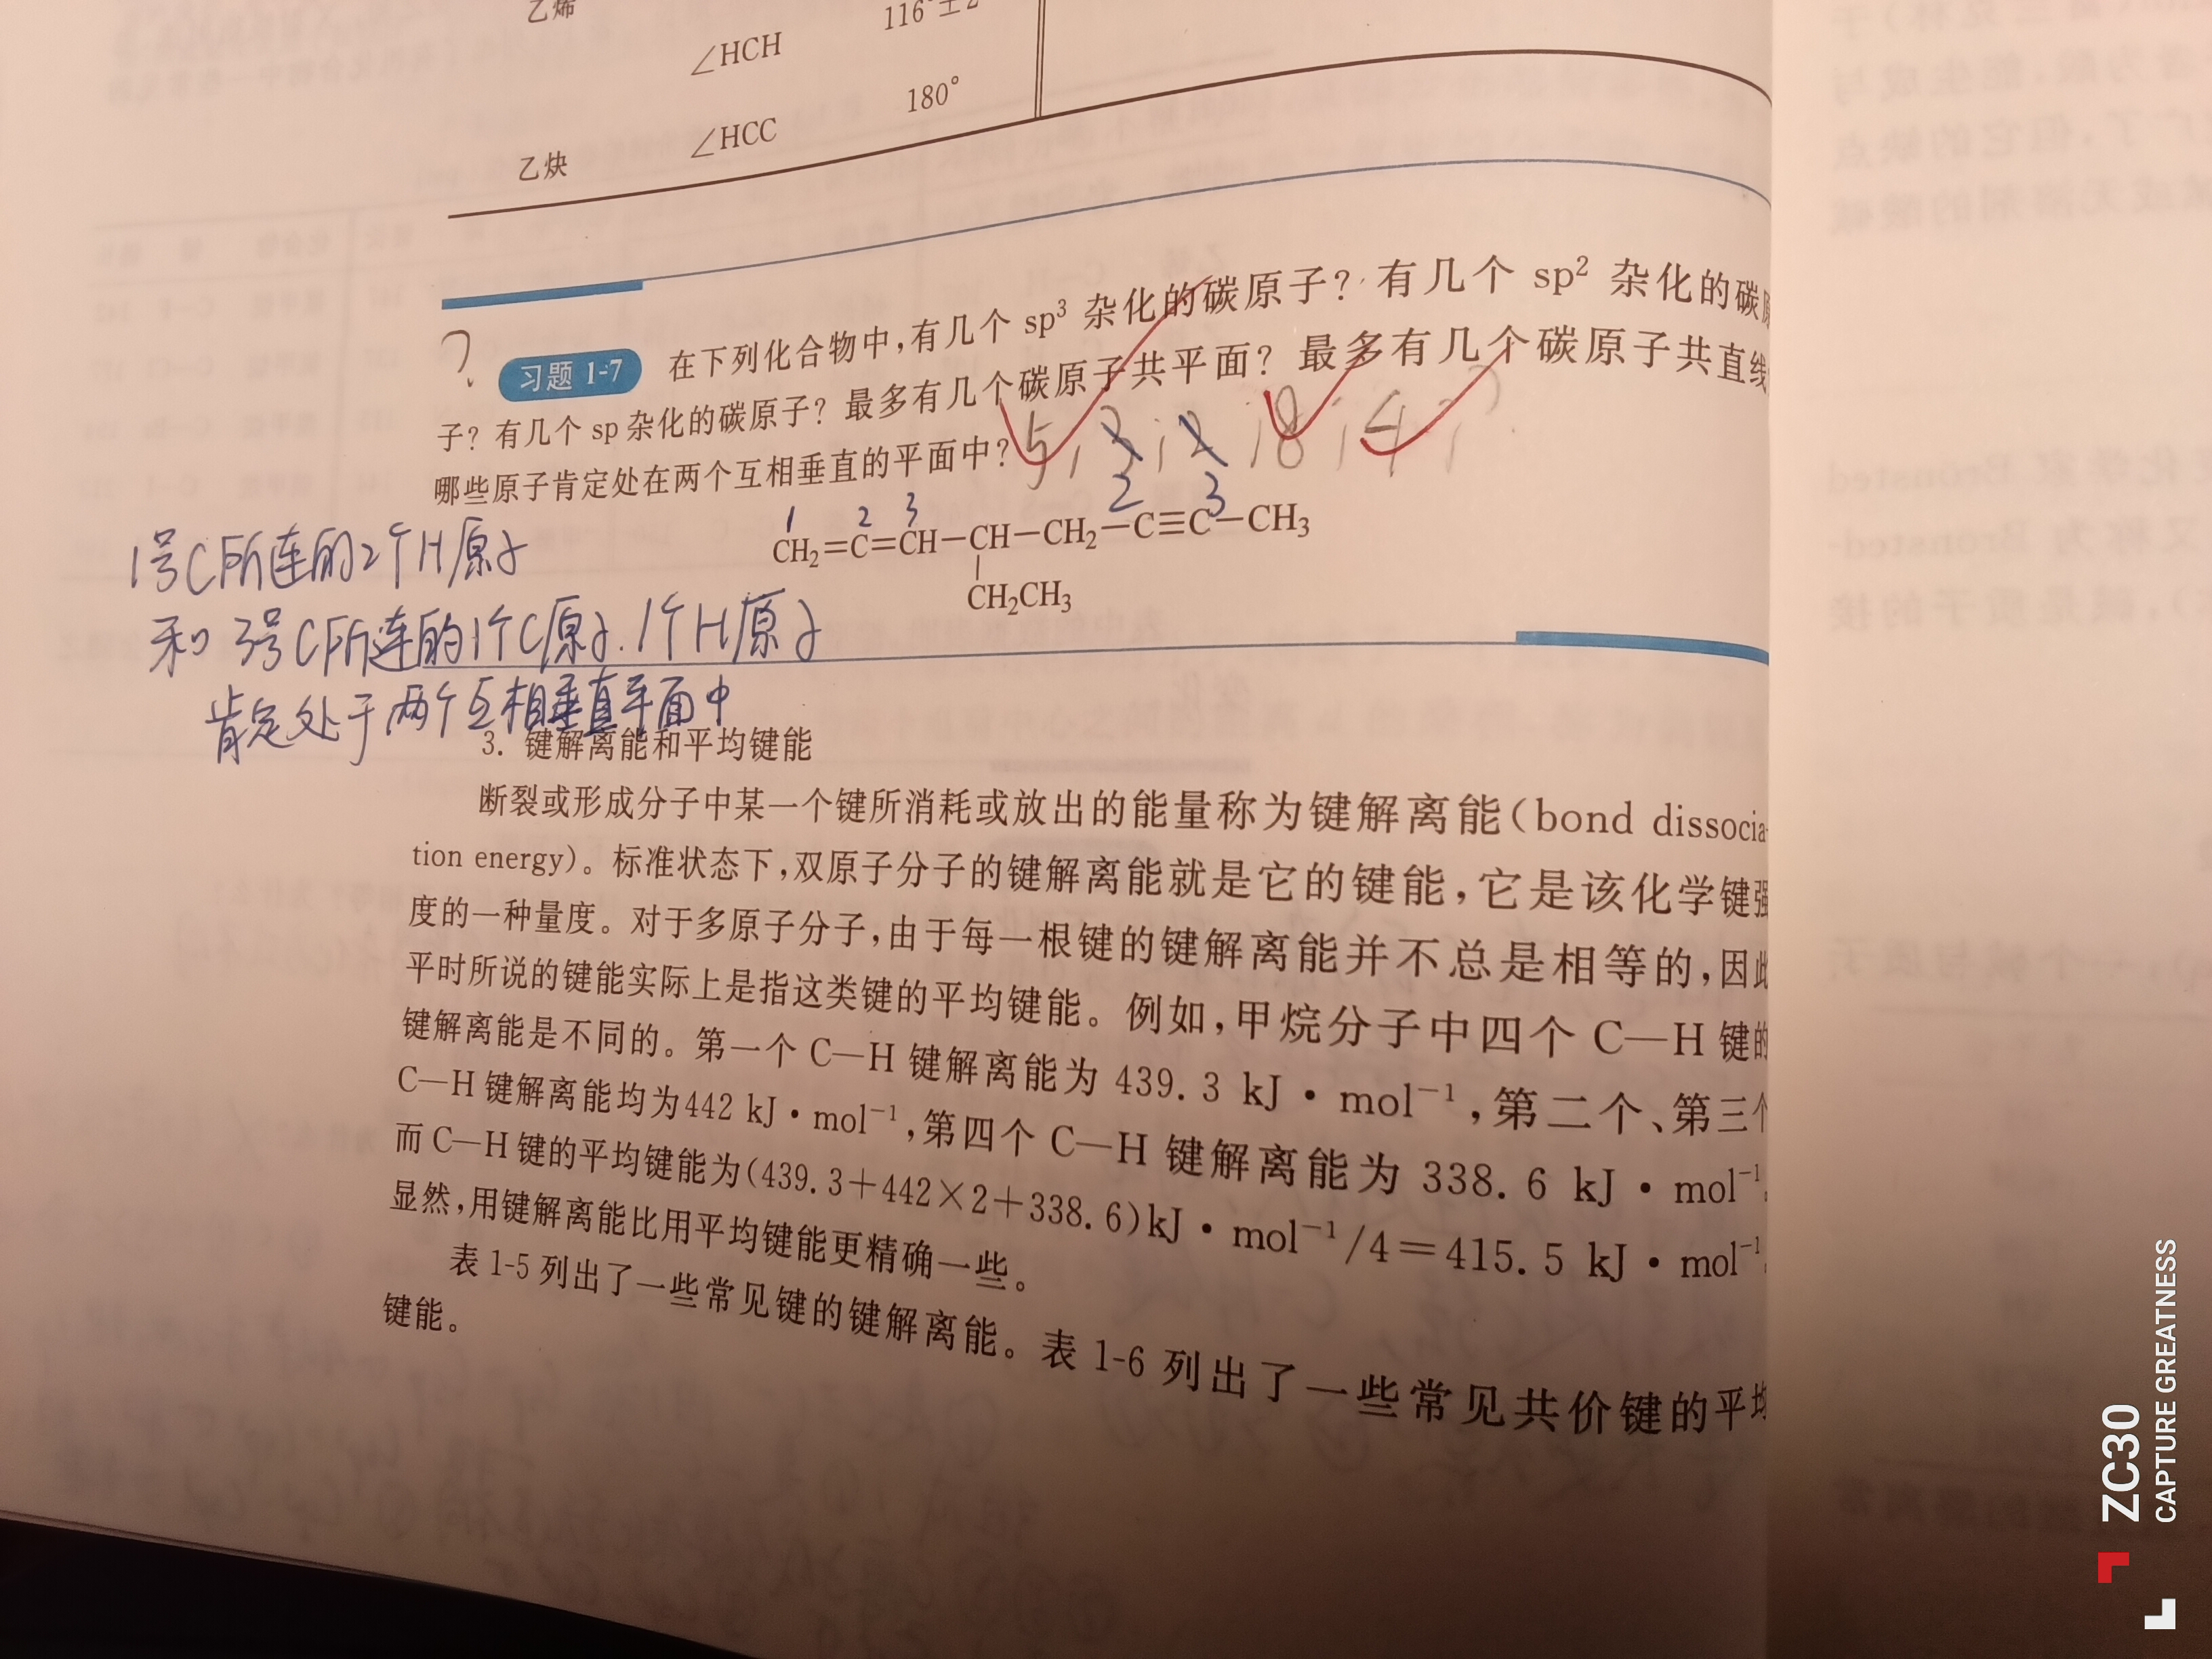 乙烯
∠HCH 116°±2
乙炔 ∠HCC 180°
?
习题 1-7 在下列化合物中,有几个 sp³ 杂化的碳原子? 有几个 sp² 杂化的碳原
子? 有几个 sp 杂化的碳原子? 最多有几个碳原子共平面? 最多有几个碳原子共直线
哪些原子肯定处在两个互相垂直的平面中?
5; 3; 2; 8; 4; ?
2 3
1 2 3
CH₂=C=CH—CH—CH₂—C≡C—CH₃
CH₂CH₃
1号C所连的2个H原子
和3号C所连的1个C原子.1个H原子
肯定处于两个互相垂直平面中
3. 键解离能和平均键能
断裂或形成分子中某一个键所消耗或放出的能量称为键解离能(bond dissocia-
tion energy)。标准状态下,双原子分子的键解离能就是它的键能,它是该化学键强
度的一种量度。对于多原子分子,由于每一根键的键解离能并不总是相等的,因此
平时所说的键能实际上是指这类键的平均键能。例如,甲烷分子中四个 C—H 键的
键解离能是不同的。第一个 C—H 键解离能为 439.3 kJ·mol⁻¹,第二个、第三个
C—H 键解离能均为442 kJ·mol⁻¹,第四个 C—H 键解离能为 338.6 kJ·mol⁻¹
而 C—H 键的平均键能为(439.3+442×2+338.6)kJ·mol⁻¹/4=415.5 kJ·mol⁻¹
显然,用键解离能比用平均键能更精确一些。
表 1-5 列出了一些常见键的键解离能。表 1-6 列出了一些常见共价键的平均
键能。
ZC30
CAPTURE GREATNESS